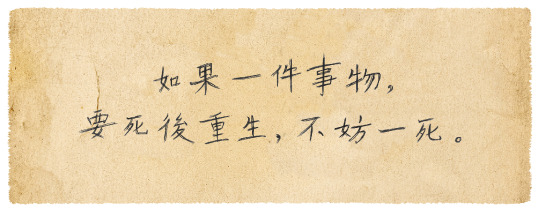 如果一件事物，
要死後重生，不妨一死。